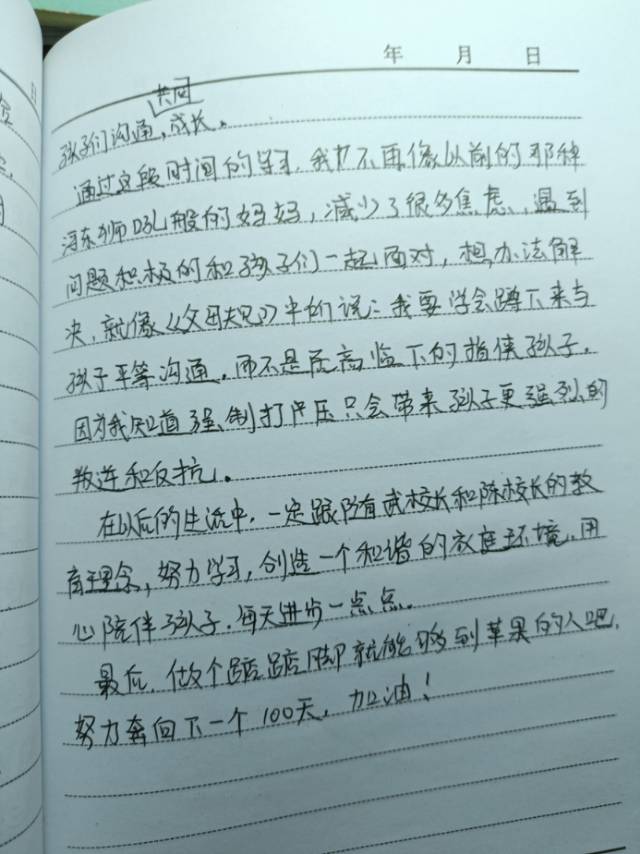 年 月 日
共同
孩子们沟通，成长。
通过这段时间的学习，我也不再像以前的那种
河东狮吼般的妈妈，减少了很多焦虑，遇到
问题积极的和孩子们一起面对，想办法解
决，就像《父母规》中们说：我要学会蹲下来与
孩子平等沟通，而不是居高临下的指使孩子。
因为我知道强制打压只会带来孩子更强烈的
叛逆和反抗。
在以后的生活中，一定跟随武校长和陈校长的教
育理念，努力学习，创造一个和谐的家庭环境，用
心陪伴孩子，每天进步一点点。
最后，做个踮踮脚就能够到苹果的人吧，
努力奔向下一个100天，加油！